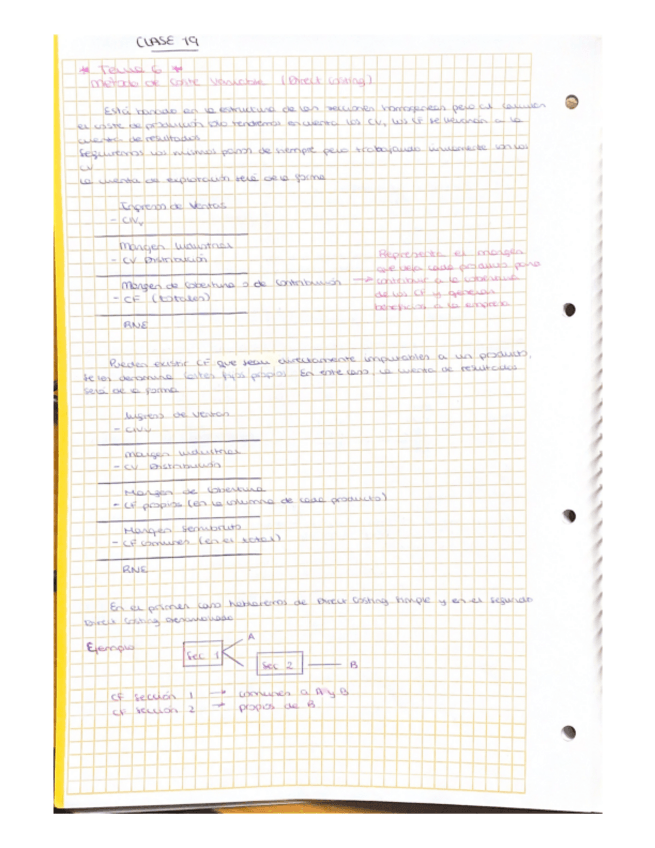 CLASE 19
* Tema 6 *
Método de Coste Variable (Direct Costing)
Está basado en la estructura de las secciones homogéneas pero al calcular
el coste de producción solo tendremos en cuenta los CV, los CF se llevarán a la
cuenta de resultados.
Seguiremos los mismos pasos de siempre pero trabajando únicamente con los
CV
La cuenta de explotación será de la forma
Ingresos de Ventas
- CIVv
Margen Industrial
- CV Distribución
Margen de Cobertura o de Contribución
- CF (totales)
RNE
Representa el margen
que deja cada producto para
contribuir a la cobertura
de los CF y generar
beneficios a la empresa
Pueden existir CF que sean directamente imputables a un producto,
se les denomina Costes fijos propios. En este caso, la cuenta de resultados
será de la forma
Ingreso de ventas
- CIVv
Margen Industrial
- CV Distribución
Margen de Cobertura
- CF propios (en la columna de cada producto)
Margen Semibruto
- CF comunes (en el total)
RNE
En el primer caso hablaremos de Direct Costing Simple y en el segundo
Direct Costing
Ejemplo
Sec 1
A
Sec 2
B
CF Sección 1 → comunes a A y B
CF Sección 2 → propios de B